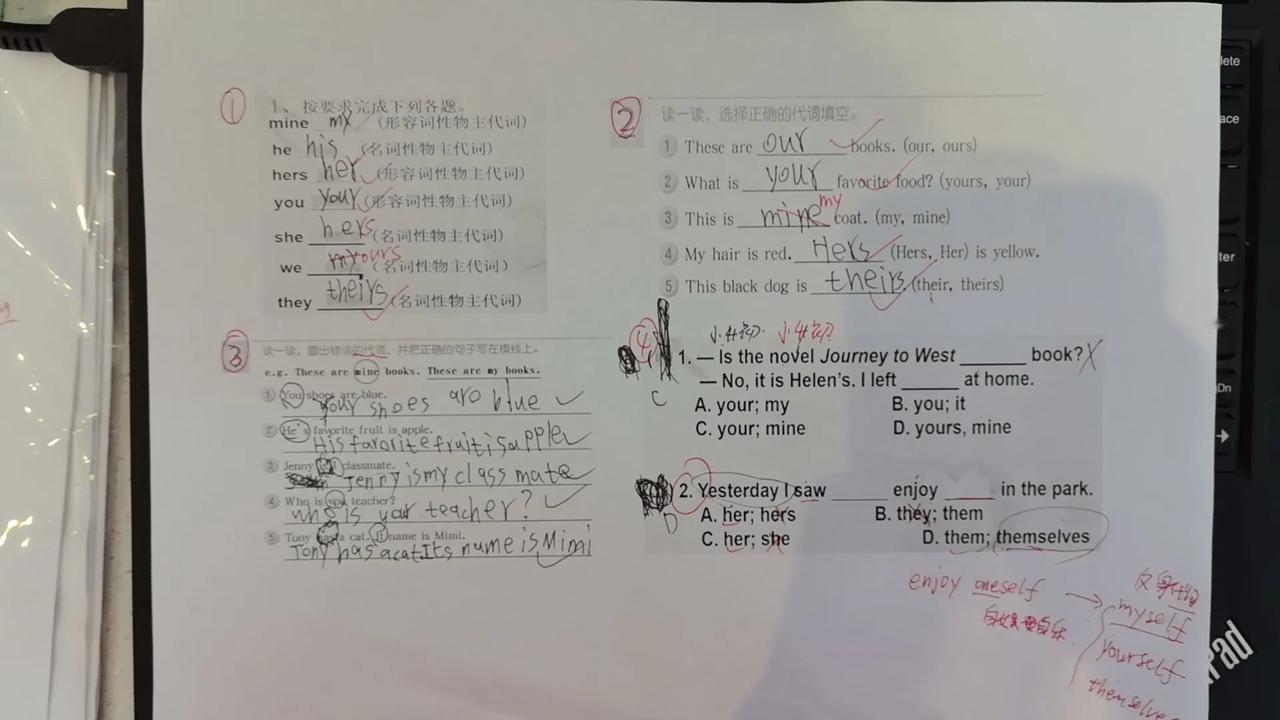 ①
1、按要求完成下列各题。
mine my (形容词性物主代词)
he his (名词性物主代词)
hers her (形容词性物主代词)
you your (形容词性物主代词)
she hers (名词性物主代词)
we my ours (名词性物主代词)
they theirs (名词性物主代词)
②
读一读，选择正确的代词填空。
① These are our books. (our, ours)
② What is your favorite food? (yours, your)
③ This is mine my coat. (my, mine)
④ My hair is red. Hers (Hers, Her) is yellow.
⑤ This black dog is theirs (their, theirs)
③
读一读，圈出错误的代词，并把正确的句子写在横线上。
e.g. These are mine books. These are my books.
① You shoes are blue.
Your shoes are blue
② He's favorite fruit is apple.
His favorite fruit is apple
③ Jenny classmate.
Jenny is my class mate
④ Who is you teacher?
who is your teacher?
⑤ Tony a cat. It name is Mimi.
Tony has a cat. Its name is Mimi
④
小升初 小升初
1. — Is the novel Journey to West ______ book?
— No, it is Helen's. I left ______ at home.
C
A. your; my B. you; it
C. your; mine D. yours, mine
2. Yesterday I saw ______ enjoy ______ in the park.
D
A. her; hers B. they; them
C. her; she D. them; themselves
enjoy oneself → myself
yourself
themselves
lete
ace
ter
Dn
Pad